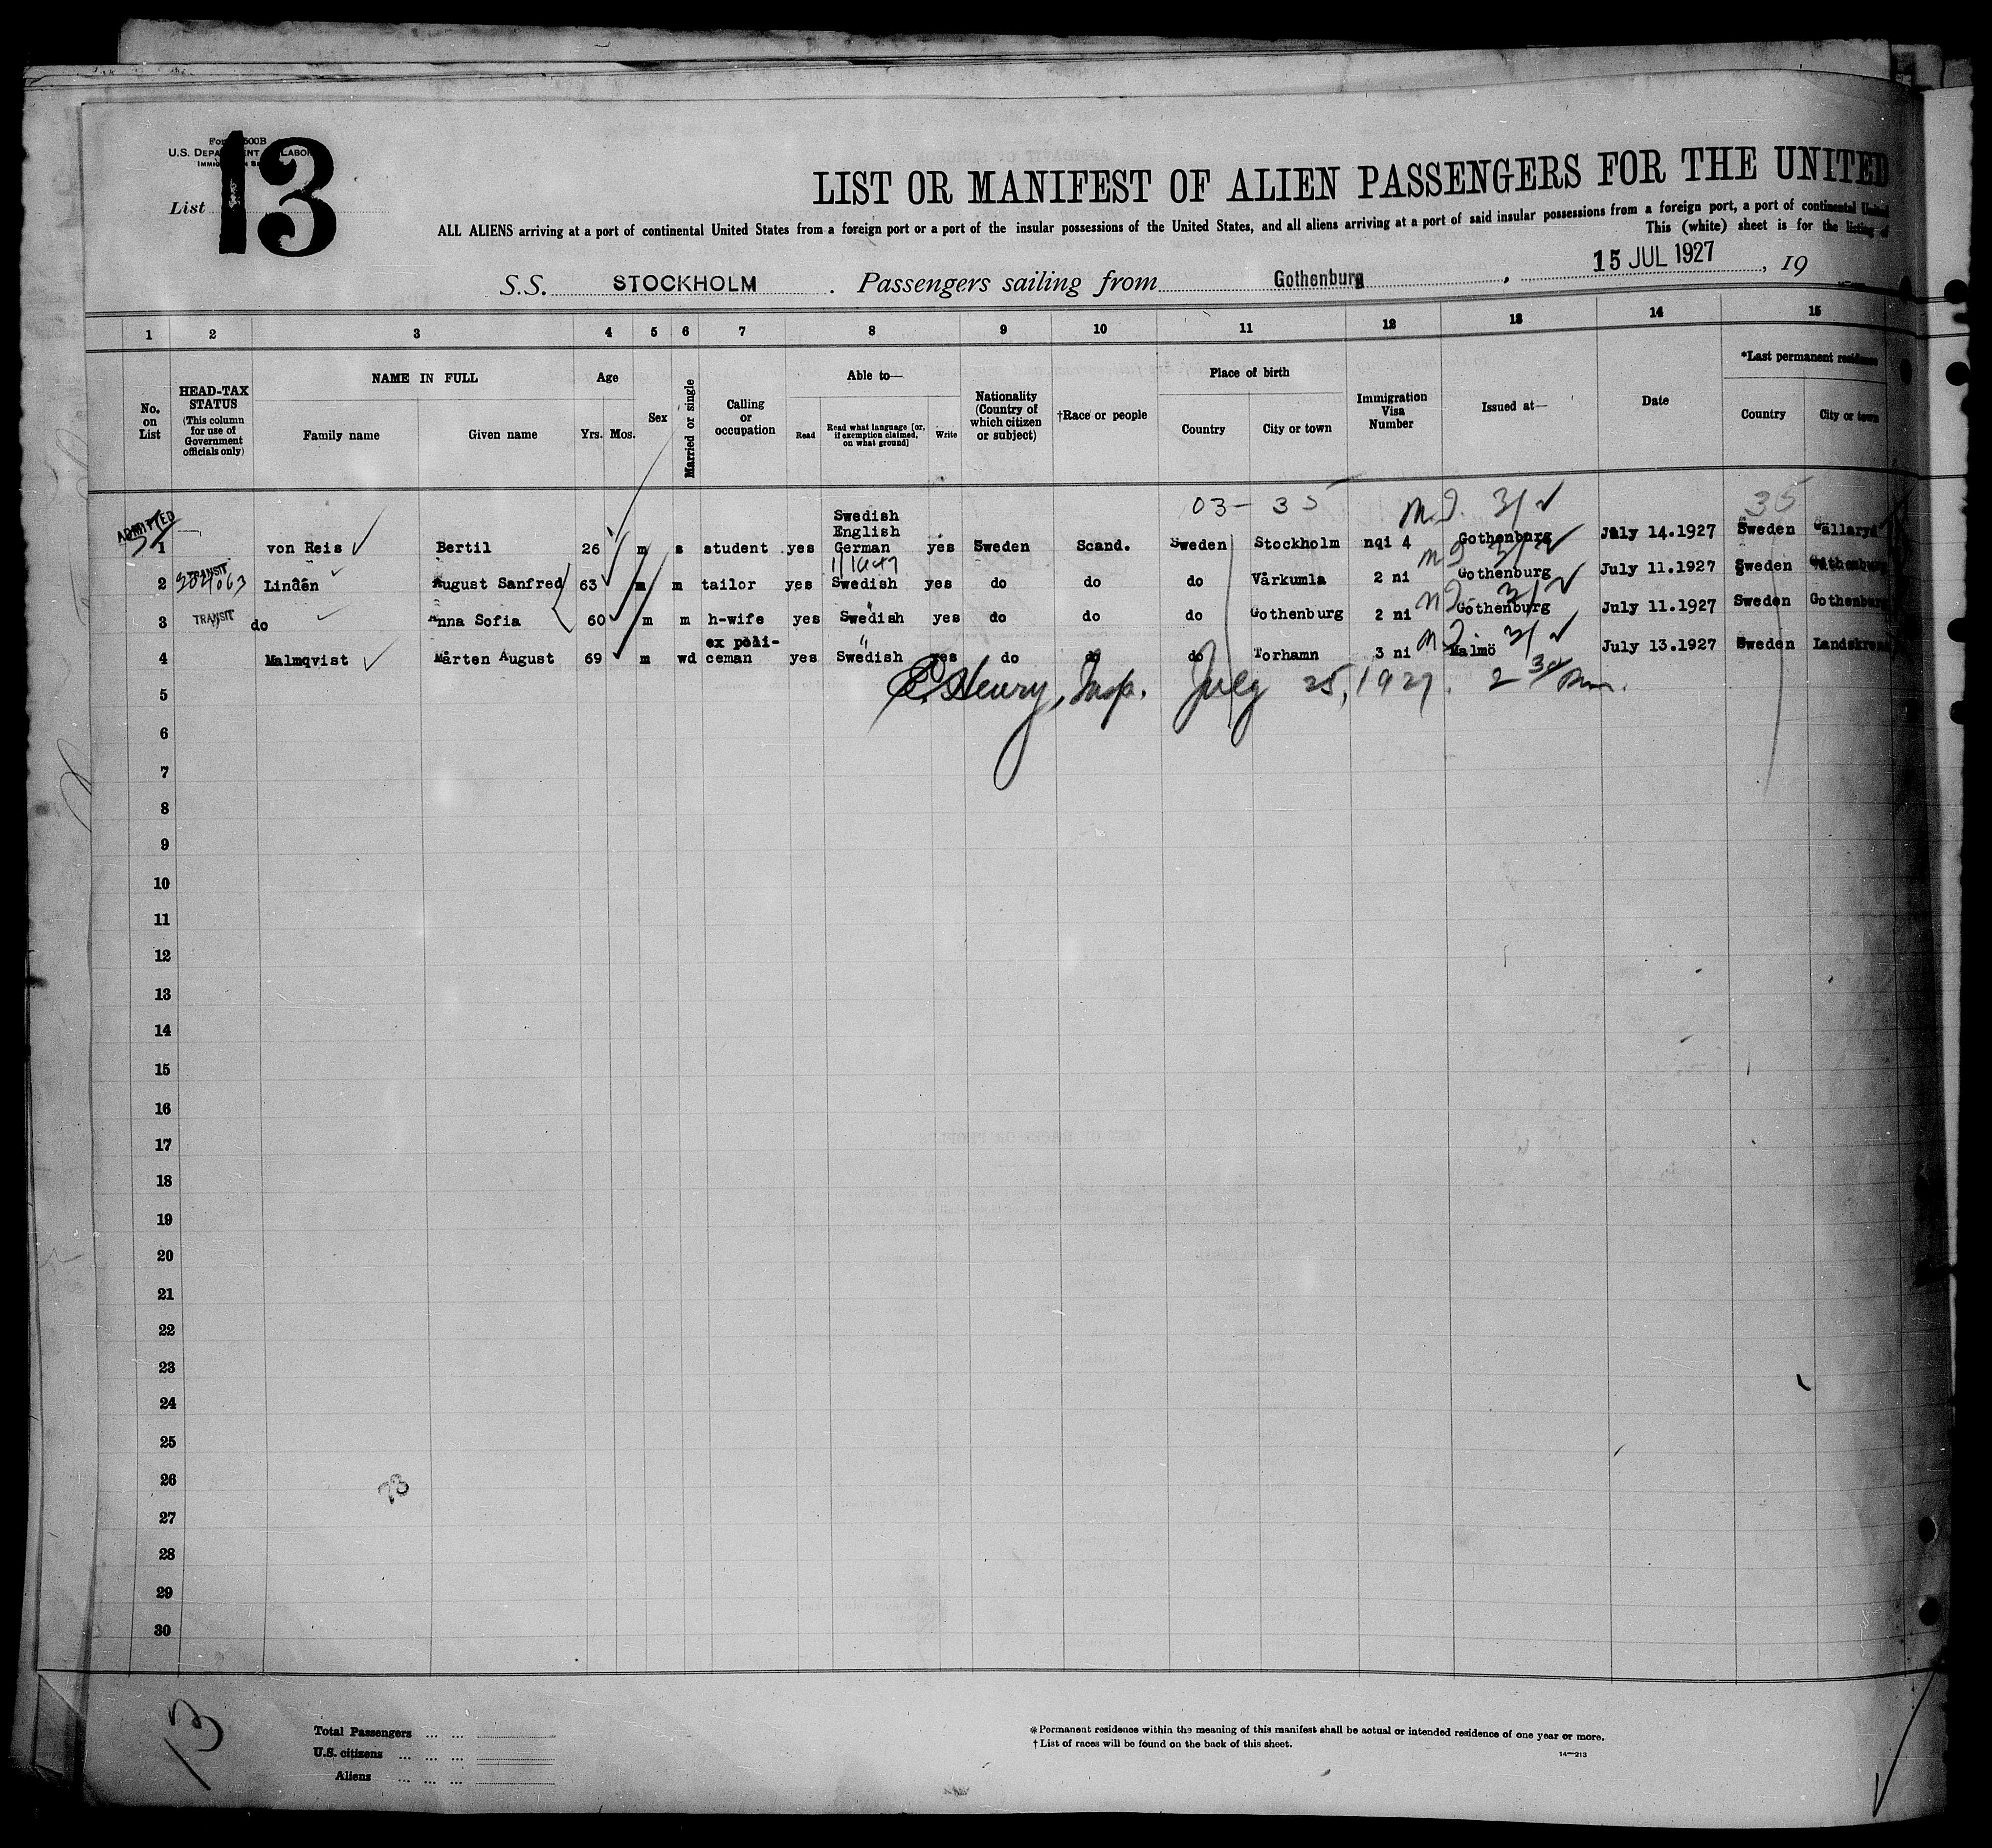 13
U.S. DEPARTMENT OF LABOR
List
LIST OR MANIFEST OF ALIEN PASSENGERS FOR THE UNITED
ALL ALIENS arriving at a port of continental United States from a foreign port or a port of the insular possessions of the United States, and all aliens arriving at a port of said insular possessions from a foreign port, a port of continental United
This (white) sheet is for the listing of
S.S. STOCKHOLM . Passengers sailing from Gothenburg , 15 JUL 1927 , 19
1 2 3 4 5 6 7 8 9 10 11 12 13 14 15
No. on List
HEAD-TAX STATUS (This column for use of Government officials only)
NAME IN FULL
Family name Given name
Age
Yrs. Mos.
Sex
Married or single
Calling or occupation
Able to—
Read Read what language [or, if exemption claimed, on what ground] Write
Nationality (Country of which citizen or subject)
†Race or people
Place of birth
Country City or town
Immigration Visa Number
Issued at—
Date
*Last permanent residence
Country City or town
03 - 35 35
ADMITTED
1 von Reis Bertil 26 m s student yes Swedish English German yes Sweden Scand. Sweden Stockholm nqi 4 Gothenburg July 14.1927 Sweden
2 TRANSIT Lindén August Sanfred 63 m m tailor yes Swedish yes do do do Vårkumla 2 ni Gothenburg July 11.1927 Sweden Gothenburg
3 TRANSIT do Anna Sofia 60 m m h-wife yes Swedish yes do do do Gothenburg 2 ni Gothenburg July 11.1927 Sweden Gothenburg
4 Malmqvist Mårten August 69 m wd ex poli-ceman yes Swedish yes do do do Torhamn 3 ni Malmö July 13.1927 Sweden Landskrona
Henry, Insp. July 25, 1927.
5
6
7
8
9
10
11
12
13
14
15
16
17
18
19
20
21
22
23
24
25
26
27
28
29
30
13
Total Passengers ... ...
U.S. citizens ... ... ...
Aliens ... ... ...
* Permanent residence within the meaning of this manifest shall be actual or intended residence of one year or more.
† List of races will be found on the back of this sheet.
14—213